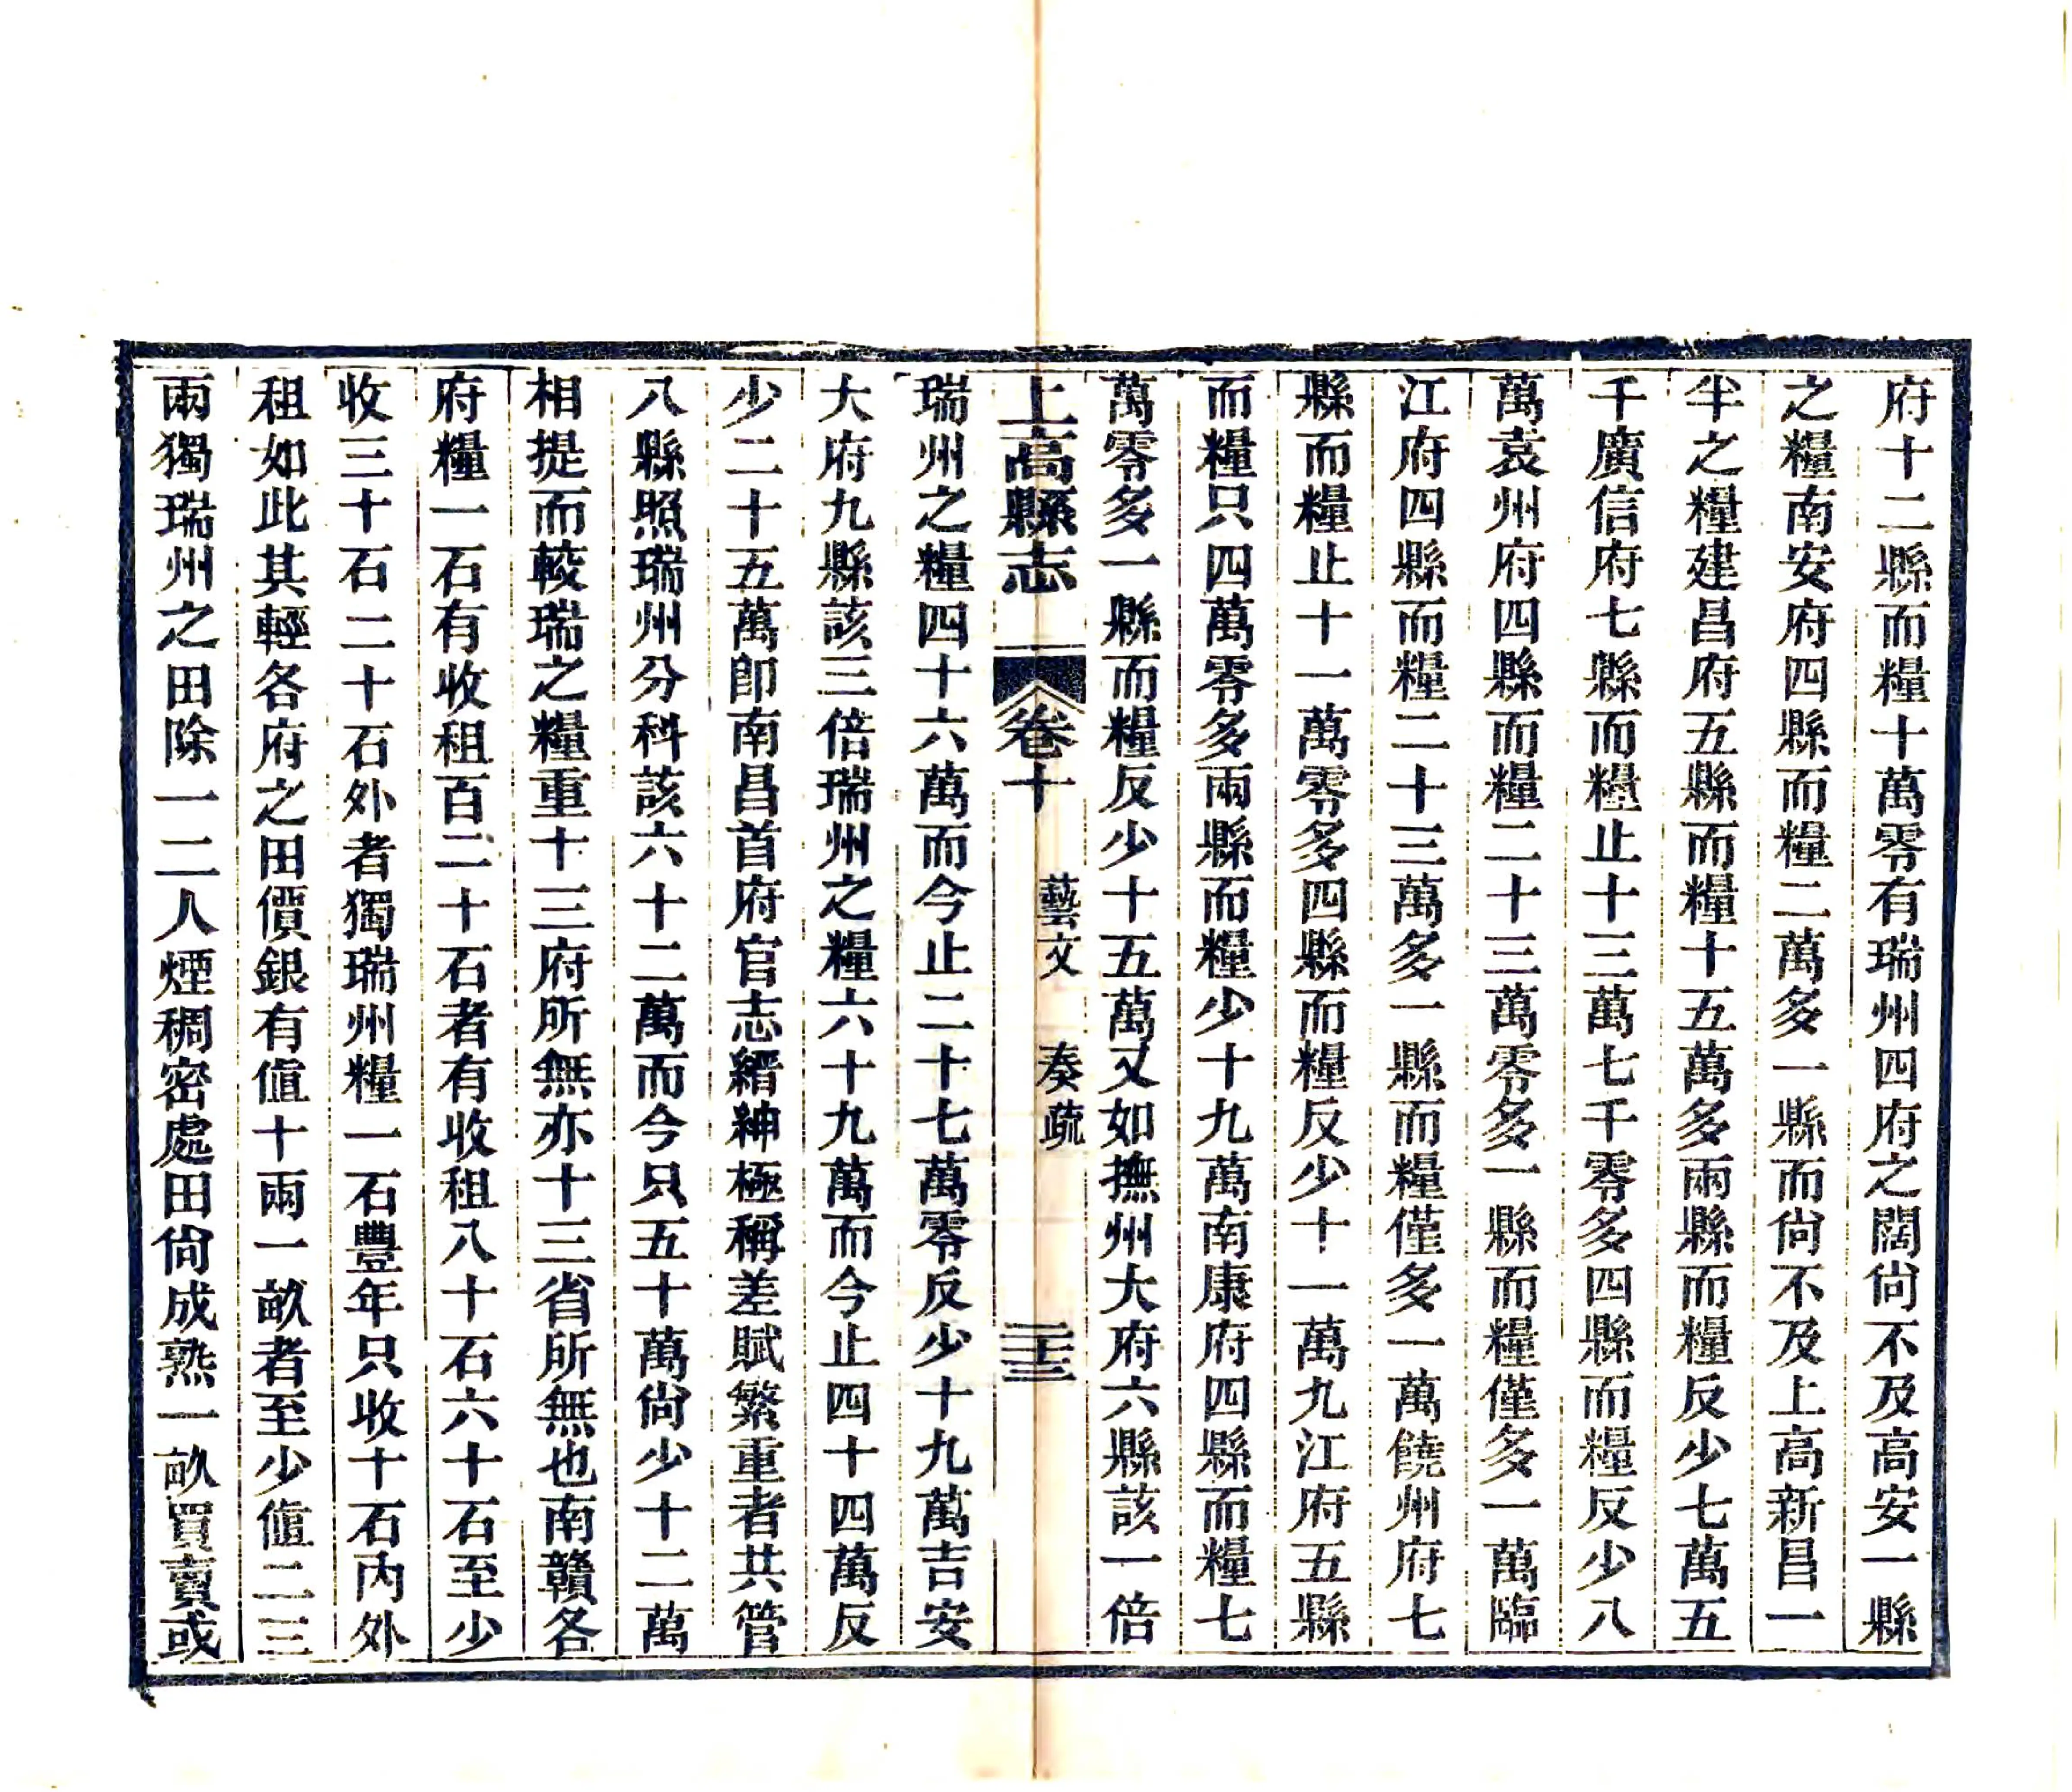 府十二縣而糧十萬零有瑞州四府之闊尙不及高安一縣
之糧南安府四縣而糧二萬多一縣而尙不及上高新昌一
半之糧建昌府五縣而糧十五萬多兩縣而糧反少七萬五
千廣信府七縣而糧止十三萬七千零多四縣而糧反少八
萬袁州府四縣而糧二十三萬零多一縣而糧僅多一萬臨
江府四縣而糧二十三萬多一縣而糧僅多一萬饒州府七
縣而糧止十一萬零多四縣而糧反少十一萬九江府五縣
而糧只四萬零多兩縣而糧少十九萬南康府四縣而糧七
萬零多一縣而糧反少十五萬又如撫州大府六縣該一倍
上高縣志 卷十 藝文 奏疏 三十三
瑞州之糧四十六萬而今止二十七萬零反少十九萬吉安
大府九縣該三倍瑞州之糧六十九萬而今止四十四萬反
少二十五萬卽南昌首府官志縉紳極稱差賦繁重者共管
八縣照瑞州分科該六十二萬而今只五十萬尙少十二萬
相提而較瑞之糧重十三府所無亦十三省所無也南贛各
府糧一石有收租百二十石者有收租八十石六十石至少
收三十石二十石外者獨瑞州糧一石豐年只收十石內外
租如此其輕各府之田價銀有値十兩一畝者至少値二三
兩獨瑞州之田除一二人煙稠密處田尙成熟一畝買賣或